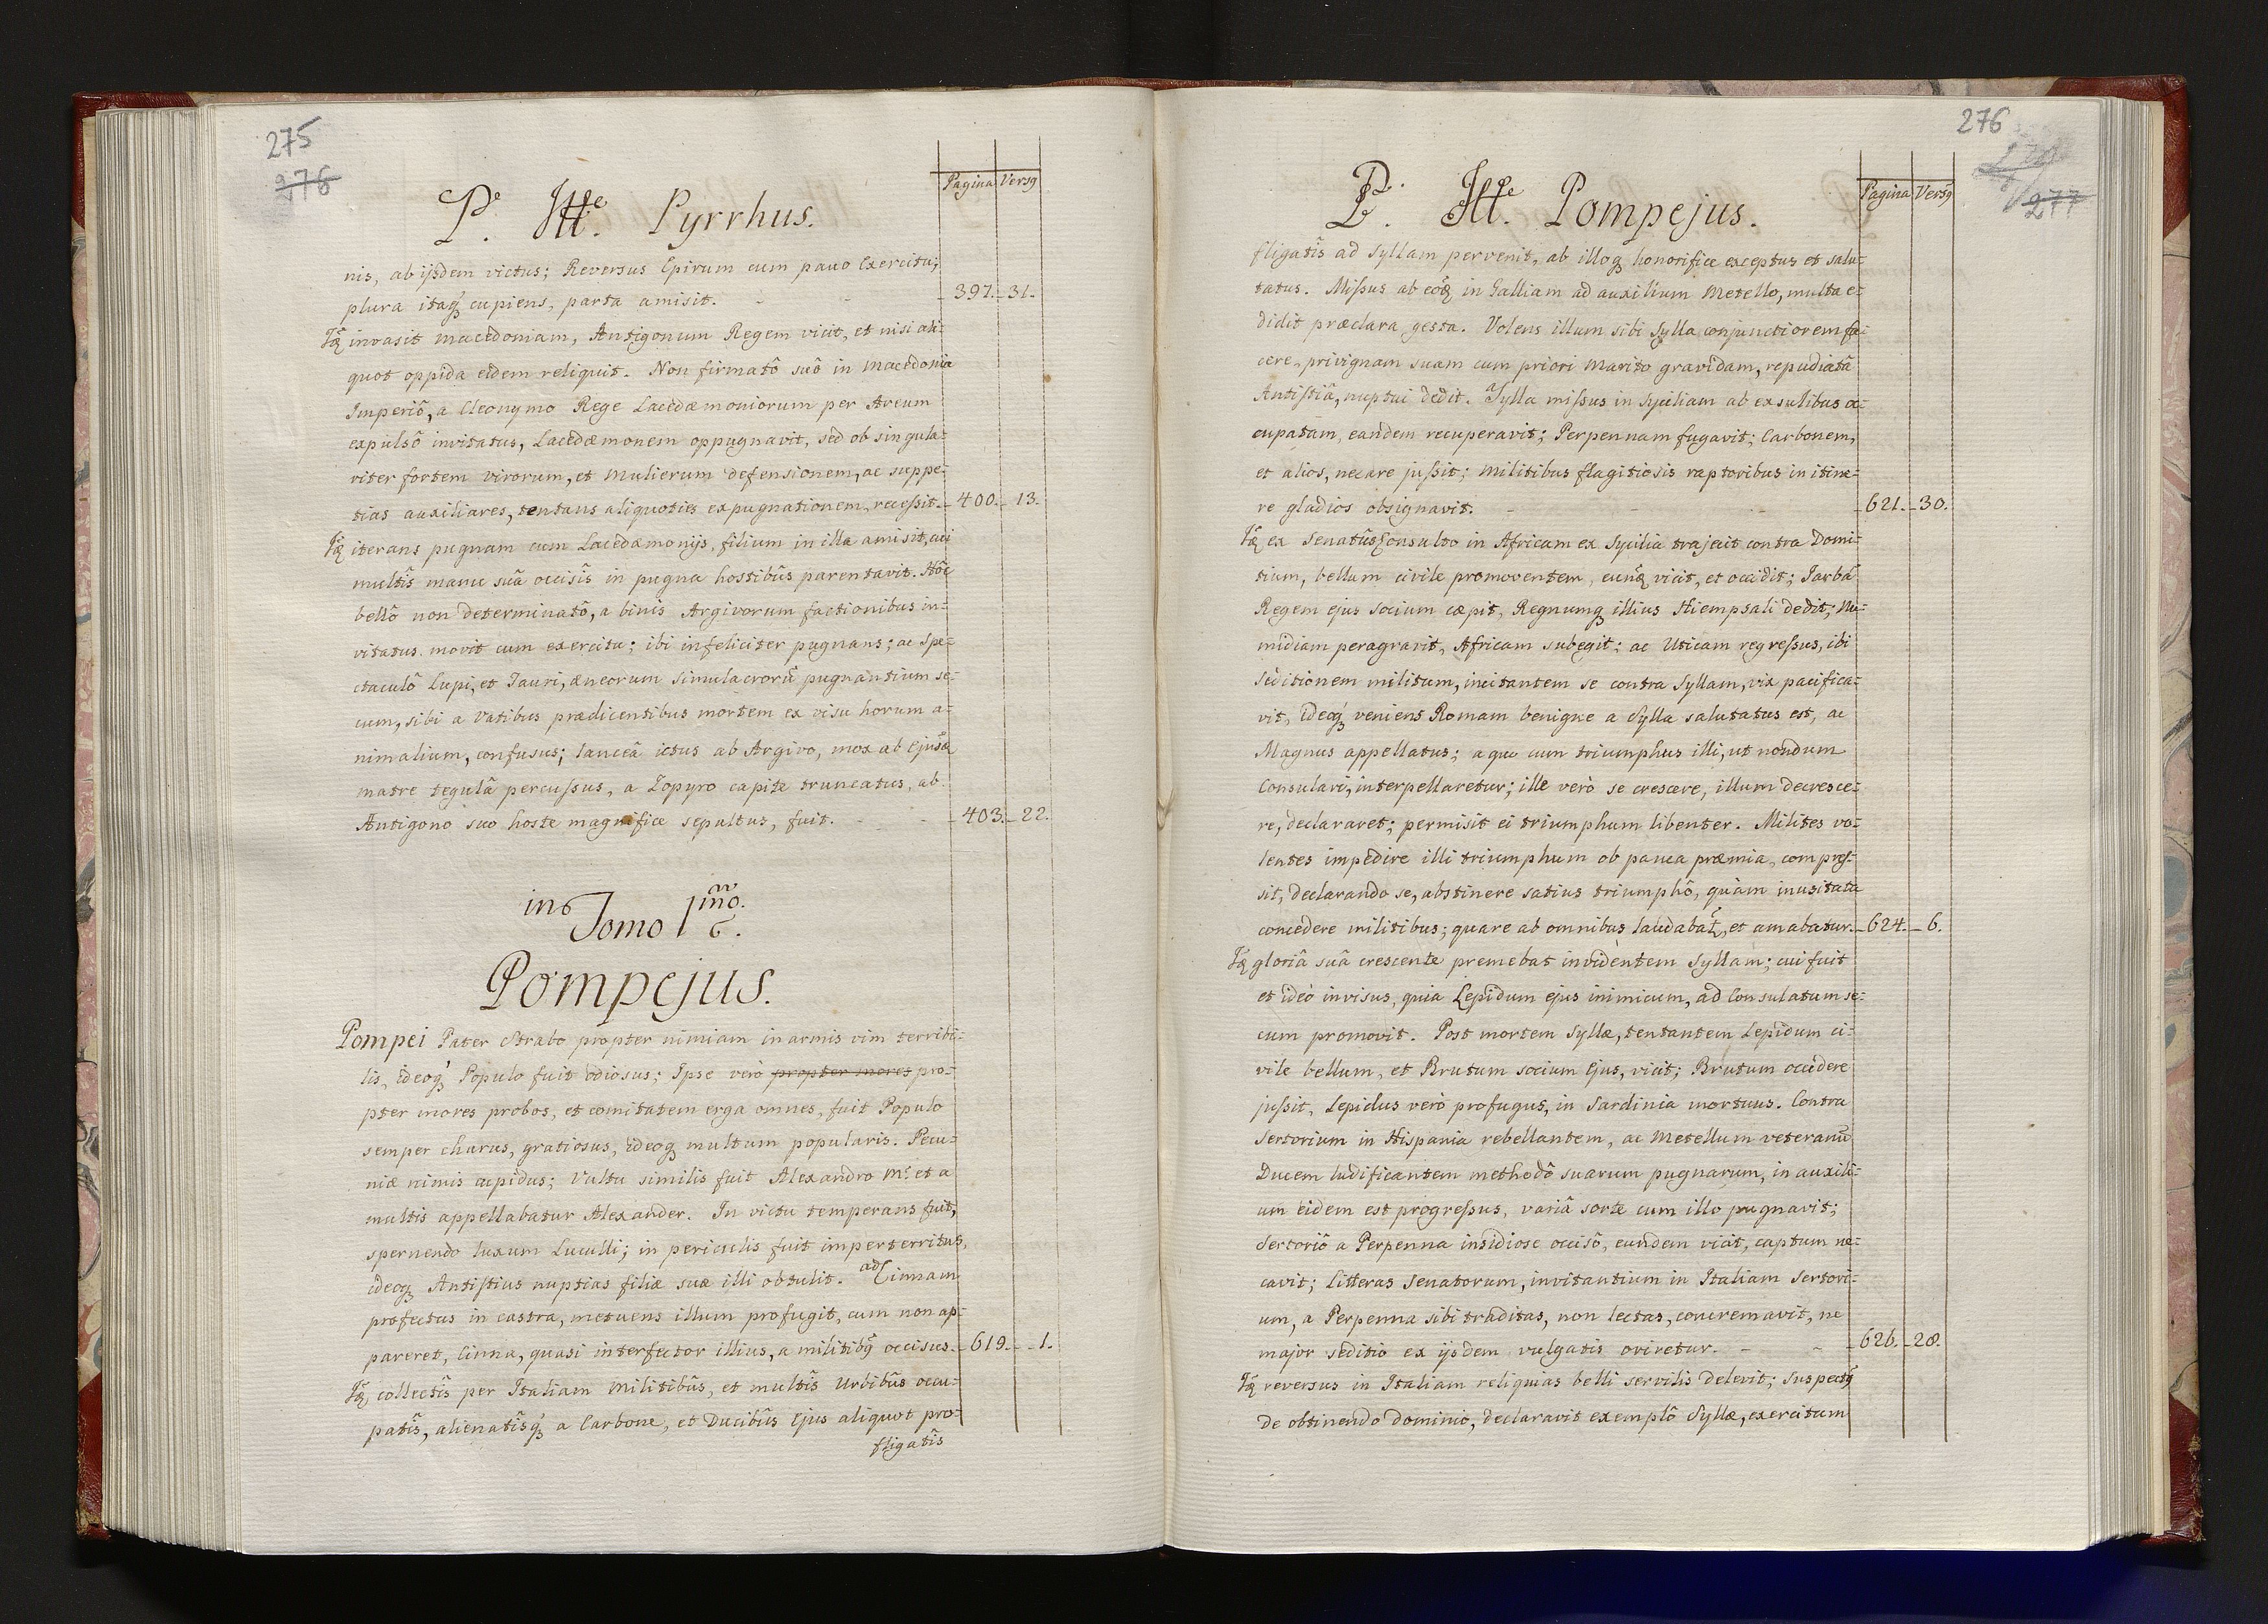 275
276
Pagina Versq
P. Ille. Pyrrhus.
nis, ab ijsdem victus; Reversus Epirum cum pauo Exercitu;
plura itaq́ cupiens, parta amisit. - - 397. - 31.
Idẽ invasit Macedoniam, Antigonum Regem vicit, et nisi ali-
quot oppida eidem reliquit. Non firmatô suô in Macedonia
Imperiô, a Cleonymo Rege Lacedæmoniorum per Areum
expulsô invitatus, Lacedæmonem oppugnavit, sed ob singula-
riter fortem virorum, et Mulierum defensionem, ac suppe-
tias auxiliares, tentans aliquoties expugnationem, recessit. - 400. - 13.
Idẽ iterans pugnam cum Lacedæmonijs, filium in illa amisit, cui
multîs manu suâ occisîs in pugna hostibûs parentavit. Hôc
bellô non determinatô, a binis Argivorum factionibus in-
vitatus movit cum exercitu; ibi infeliciter pugnans; ac spe-
ctaculô Lupi, et Tauri, æneorum simulacrorũ pugnantium se-
cum, sibi a Vatibus prædicentibus mortem ex visu horum a-
nimalium, confusus; lanceâ ictus ab Argivo, mox ab Ejusdẽ
matre tegulâ percussus, a Zopyro capite truncatus, ab
Antigono suo hoste magnifice sepultus, fuit. - - - 403. - 22.
in Tomo 1mo.
6.
Pompejus.
Pompei Pater Strabo propter nimiam in armis vim terribi-
lis, ideoq́ Populo fuit odiosus; Ipse verò propter mores pro-
pter mores probos, et comitatem erga omnes, fuit Populo
semper charus, gratiosus, ideoq multum popularis. Pecu-
niæ nimis cupidus; Vultu similis fuit Alexandro M. et a
multis appellabatur Alexander. In victu temperans fuit,
spernendo luxum Luculli; in periculis fuit imperterritus,
ideoq Antistius nuptias filiæ suæ illi obtulit. ad Cinnam
profectus in castra, metuens illum profugit, cum non ap-
pareret, Cinna, quasi interfector illius, a militibq occisus. - 619. - 1.
Idẽ collectîs per Italiam Militibûs, et multîs Urbibûs occu-
patîs, alienatîsq́ a Carbone, et Ducibûs Ejus aliquot pro-
fligatîs
276
277
Pagina Versq
P. Ille. Pompejus.
fligatîs ad Syllam pervenit, ab illoq honorifice exceptus et salu-
tatus. Missus ab eodẽ in Galliam ad auxilium Metello, multa e-
didit præclara gesta. Volens illum sibi Sylla conjunctiorem fa-
cere, privignam suam cum priori Marito gravidam, repudiatâ
Antistiâ, nuptui dedit. a Sylla missus in Syciliam ab exsulibus oc-
cupatam, eandem recuperavit; Perpennam fugavit; Carbonem,
et alios, necare jussit; Militibus flagitiosis raptoribus in itine-
re gladios obsignavit. - - - 621. - 30.
Idẽ ex SenatûsConsulto in Africam ex Sycilia trajecit contra Domi-
tium, bellum civile promoventem, eundẽ vicit, et occidit; Jarbã
Regem ejus socium cæpit, Regnumq illius Hiempsali dedit; Nu-
midiam peragravit, Africam subegit; ac Uticam regressus, ibi
seditionem militum, incitantem se contra Syllam, vix pacifica-
vit, ideoq́ veniens Romam benigne a Sylla salutatus est, ac
Magnus appellatus; a quo cum triumphus illi, ut nondum
Consulari, interpellaretur; ille verò se crescere, illum decresce-
re, declararet; permisit ei triumphum libenter. Milites vo-
lentes impedire illi triumphum ob pauca præmia, compres-
sit, declarando se, abstinere satius triumphô, quàm inusitata
concedere militibus; quare ab omnibus laudabat, et amabatur. - 624. - 6.
Idẽ gloriâ suâ crescente premebat invidentem Syllam; cui fuit
et ideò invisus, quia Lepidum ejus inimicum, ad Consulatum se-
cum promovit. Post mortem Syllæ, tentantem Lepidum ci-
vile bellum, et Brutum socium Ejus, vicit; Brutum occidere
jussit, Lepidus verò profugus, in Sardinia mortuus. Contra
Sertorium in Hispania rebellantem, ac Metellum veteranũ
Ducem ludificantem methodô suarum pugnarum, in auxili-
um eidem est progressus, variâ sorte cum illo pugnavit;
Sertoriô a Perpenna insidiose occisô, eundem vicit, captum ne-
cavit; litteras Senatorum, invitantium in Italiam Sertori-
um, a Perpenna sibi traditas, non lectas, concremavit, ne
major seditio ex ijsdem vulgatis oriretur. - - - 626. - 28.
Idẽ reversus in Italiam reliquias belli servilis delevit; Suspectq
de obtinendo dominio, declaravit exemplô Syllæ, exercitum